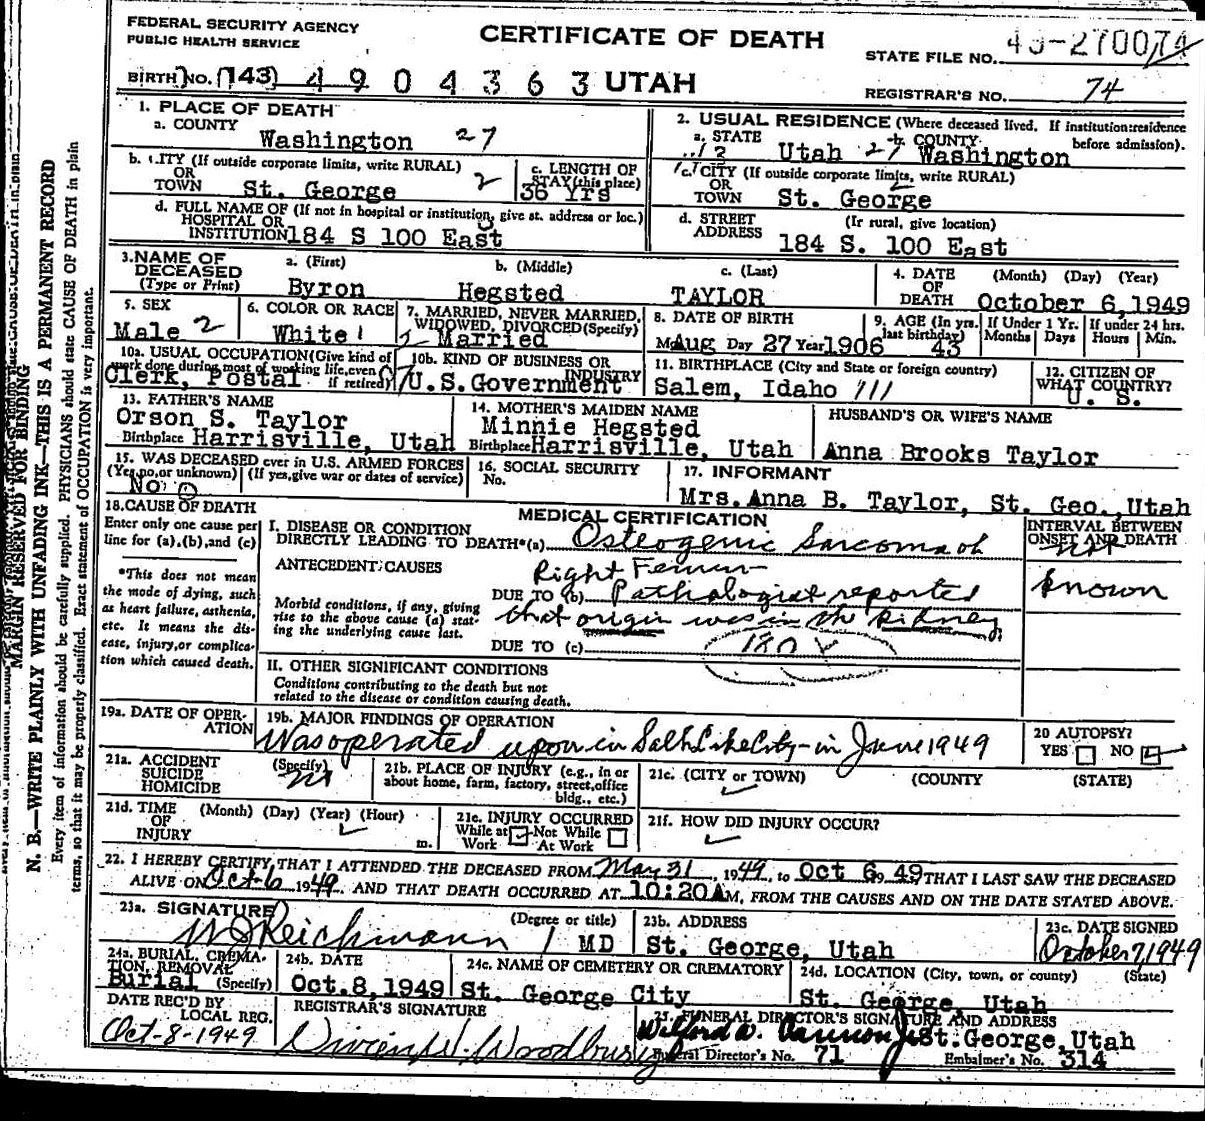 FEDERAL SECURITY AGENCY
PUBLIC HEALTH SERVICE
CERTIFICATE OF DEATH
STATE FILE NO.
BIRTH NO. (143) 4904363 UTAH
REGISTRAR'S NO. 74
1. PLACE OF DEATH
a. COUNTY
Washington 27
2. USUAL RESIDENCE (Where deceased lived. If institution: residence before admission).
a. STATE
Utah 27
b. COUNTY
Washington
b. CITY (If outside corporate limits, write RURAL)
OR
TOWN St. George 2
c. LENGTH OF
STAY (this place)
36 Yrs
c. CITY (If outside corporate limits, write RURAL)
OR
TOWN St. George
d. FULL NAME OF (If not in hospital or institution, give st. address or loc.)
HOSPITAL OR
INSTITUTION 184 S 100 East
d. STREET (If rural, give location)
ADDRESS
184 S. 100 East
3. NAME OF DECEASED
(Type or Print)
a. (First)
Byron
b. (Middle)
Hegsted
c. (Last)
TAYLOR
4. DATE OF DEATH (Month) (Day) (Year)
October 6, 1949
5. SEX
Male 2
6. COLOR OR RACE
White 1
7. MARRIED, NEVER MARRIED,
WIDOWED, DIVORCED (Specify)
Married
8. DATE OF BIRTH
Aug Day 27 Year 1906
9. AGE (In yrs. last birthday)
43
If Under 1 Yr.
Months Days
If under 24 hrs.
Hours Min.
10a. USUAL OCCUPATION (Give kind of
work done during most of working life, even
if retired)
Clerk, Postal
10b. KIND OF BUSINESS OR
INDUSTRY
U.S. Government
11. BIRTHPLACE (City and State or foreign country)
Salem, Idaho
12. CITIZEN OF
WHAT COUNTRY?
U. S.
13. FATHER'S NAME
Orson S. Taylor
Birthplace Harrisville, Utah
14. MOTHER'S MAIDEN NAME
Minnie Hegsted
Birthplace Harrisville, Utah
HUSBAND'S OR WIFE'S NAME
Anna Brooks Taylor
15. WAS DECEASED ever in U.S. ARMED FORCES
(Yes, no, or unknown) (If yes, give war or dates of service)
No 0
16. SOCIAL SECURITY
No.
17. INFORMANT
Mrs. Anna B. Taylor, St. Geo., Utah
18. CAUSE OF DEATH
Enter only one cause per
line for (a), (b), and (c)
*This does not mean
the mode of dying, such
as heart failure, asthenia,
etc. It means the dis-
ease, injury, or complica-
tion which caused death.
MEDICAL CERTIFICATION
I. DISEASE OR CONDITION
DIRECTLY LEADING TO DEATH*(a) Osteogenic Sarcoma of
Right Femur
ANTECEDENT CAUSES
Morbid conditions, if any, giving
rise to the above cause (a) stat-
ing the underlying cause last.
DUE TO (b) Pathologist reported
that origin was in the kidney
DUE TO (c) 180
INTERVAL BETWEEN
ONSET AND DEATH
not
known
II. OTHER SIGNIFICANT CONDITIONS
Conditions contributing to the death but not
related to the disease or condition causing death.
19a. DATE OF OPER-
ATION
19b. MAJOR FINDINGS OF OPERATION
Was operated upon in Salt Lake City - in June 1949
20 AUTOPSY?
YES NO
21a. ACCIDENT
SUICIDE
HOMICIDE
(Specify)
21b. PLACE OF INJURY (e.g., in or
about home, farm, factory, street, office
bldg., etc.)
21c. (CITY or TOWN) (COUNTY) (STATE)
21d. TIME OF INJURY
(Month) (Day) (Year) (Hour)
m.
21e. INJURY OCCURRED
While at Work Not While At Work
21f. HOW DID INJURY OCCUR?
22. I HEREBY CERTIFY THAT I ATTENDED THE DECEASED FROM May 31, 1949, TO Oct 6 49, THAT I LAST SAW THE DECEASED
ALIVE ON Oct-6 1949, AND THAT DEATH OCCURRED AT 10:20 AM, FROM THE CAUSES AND ON THE DATE STATED ABOVE.
23a. SIGNATURE (Degree or title)
W J Reichmann MD
23b. ADDRESS
St. George, Utah
23c. DATE SIGNED
October 7, 1949
24a. BURIAL, CREMA-
TION, REMOVAL
Burial (Specify)
24b. DATE
Oct. 8, 1949
24c. NAME OF CEMETERY OR CREMATORY
St. George City
24d. LOCATION (City, town, or county) (State)
St. George, Utah
DATE REC'D BY
LOCAL REG.
Oct-8-1949
REGISTRAR'S SIGNATURE
Woodbury
25. FUNERAL DIRECTOR'S SIGNATURE AND ADDRESS
St. George, Utah
Funeral Director's No. 71
Embalmer's No. 314
MARGIN RESERVED FOR BINDING
N. B.—WRITE PLAINLY WITH UNFADING INK—THIS IS A PERMANENT RECORD
Every item of information should be carefully supplied. PHYSICIANS should state CAUSE OF DEATH in plain
terms, so that it may be properly classified. Exact statement of OCCUPATION is very important.